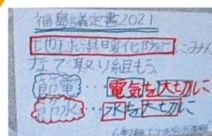 福島議定書2021
地球温暖化防止にみん
なで取り組もう。
節電…電気を大切に
節水…水を大切に